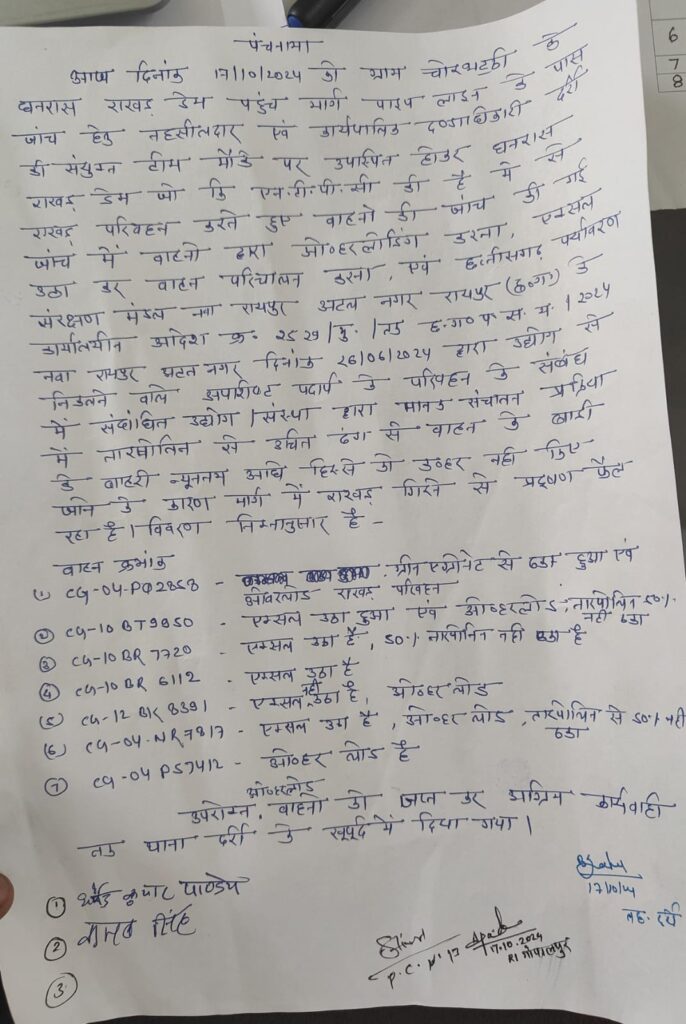 पंचनामा
आज दिनांक 17/10/2024 को ग्राम चोरभट्ठी के
धनरास राखड़ डेम पहुंच मार्ग पाइप लाइन के पास
जांच हेतु तहसीलदार एवं कार्यपालिक दण्डाधिकारी दर्री
की संयुक्त टीम मौके पर उपस्थित होकर धनरास
राखड़ डेम जो कि एन.टी.पी.सी की है में से
राखड़ परिवहन करते हुए वाहनो की जांच की गई
जांच में वाहनो द्वारा ओव्हरलोडिंग करना, एक्सल
उठा कर वाहन परिचालन करना, एवं छत्तीसगढ़ पर्यावरण
संरक्षण मंडल नवा रायपुर अटल नगर रायपुर (छ०ग०) के
कार्यालयीन आदेश क्र. 2529/मु./तक/छ.ग०प.स.म./2024
नवा रायपुर अटल नगर दिनांक 26/06/2024 द्वारा उद्योग से
निकलने वाले अपशिष्ट पदार्थ के परिवहन के संबंध
में संबंधित उद्योग/संस्था द्वारा मानक संचालन प्रक्रिया
में तारपोलिन से उचित ढंग से वाहन के बाडी
के बाहरी न्यूनतम आधे हिस्से को कव्हर नही किए
जाने के कारण मार्ग में राखड़ गिरने से प्रदूषण फैल
रहा है। विवरण निम्नानुसार है -
वाहन क्रमांक
(1) CG-04-PQ2858 - ग्रीन एग्रोनेट से ढका हुआ एवं
ओवरलोड राखड़ परिवहन
(2) CG-10 BT9850 - एक्सल उठा हुआ एवं ओव्हरलोड, तारपोलिन 50%
नही ढका
(3) CG-10 BR 7720 - एक्सल उठा है, 50% तारपोलिन नही ढका है
(4) CG-10 BR 6112 - एक्सल उठा है
(5) CG-12 BK 8391 - एक्सल नही उठा है, ओव्हर लोड
(6) CG-04-NR7817 - एक्सल उठा है, ओव्हर लोड, तारपोलिन से 50% नही
ढका
(7) CG-04 PS7412 - ओव्हर लोड है
ओव्हरलोड
उपरोक्त, वाहनो को जप्त कर अग्रिम कार्यवाही
तक थाना दर्री के सुपूर्द में दिया गया।
(1) कुमार पाण्डेय
(2) सिंह
(3)
17/10/24
तह. दर्री
17.10.2024
RI गोपालपुर
6
7
8